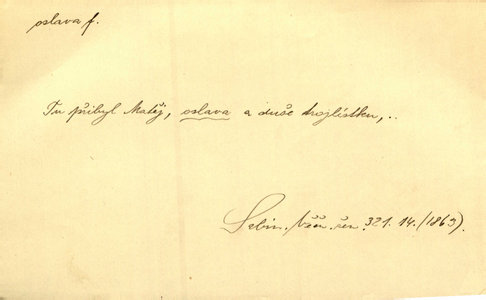 oslava f.
Tu přibyl Matěj, oslava a duše trojlístku,..
Sebr. 321. 14. (1863).